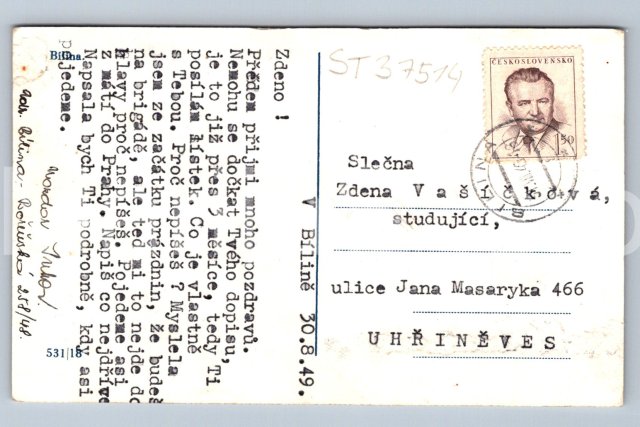 Bílina.
Zdeno !
Předem přijmi mnoho pozdravů.
Nemohu se dočkat Tvého dopisu,
je to již přes 3 měsíce, tedy Ti
posílám lístek. Co je vlastně
s Tebou. Proč nepíšeš ? Myslela
jsem ze začátku prázdnin, že budeš
na brigádě, ale teď mi to nejde do
hlavy proč nepíšeš. Pojedeme asi
z mátí do Prahy. Napiš co nejdříve
Napsala bych Ti podrobně, kdy asi
pojedeme.
V Bílině 30.8.49.
Adr. Bílina-
531|18
ST 37514
ČESKOSLOVENSKO
1.50
BÍLINA
Slečna
Zdena Vašíčková,
studující,
ulice Jana Masaryka 466
UHŘINĚVES